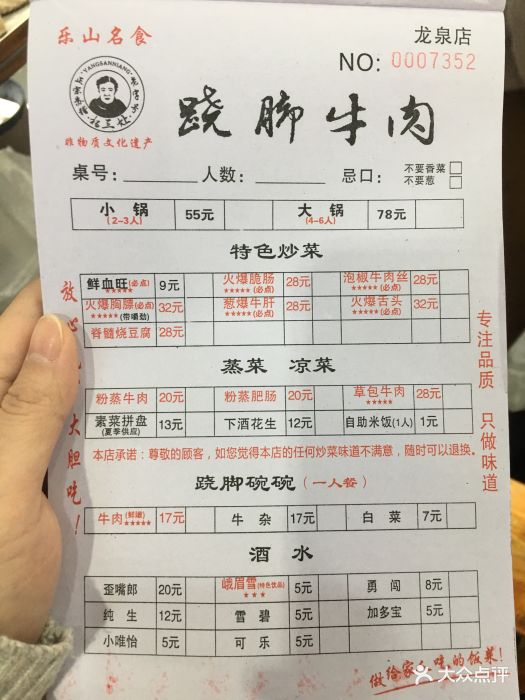 乐山名食
龙泉店
NO: 0007352
YANGSANNIANG
跷脚牛肉
非物质文化遗产
桌号: 人数: 忌口: 不要香菜 不要葱
小锅 (2-3人) 55元 大锅 (4-6人) 78元
特色炒菜
鲜血旺(必点) ★★★★★ 9元 火爆脆肠 ★★★★★(必点) 28元 泡椒牛肉丝 ★★★★★(必点) 28元
火爆胸膘(必点) ★★★★★(带嚼劲) 32元 葱爆牛肝 ★★★★★(必点) 28元 火爆舌头 ★★★★★(必点) 32元
脊髓烧豆腐 28元
蒸菜 凉菜
粉蒸牛肉 20元 粉蒸肥肠 20元 草包牛肉 ★★★★★ 28元
素菜拼盘 (夏季供应) 13元 下酒花生 12元 自助米饭(1人) 1元
本店承诺:尊敬的顾客,如您觉得本店的任何炒菜味道不满意,随时可以退换。
跷脚碗碗(一人餐)
牛肉(鲜嫩) ★★★★★ 17元 牛杂 17元 白菜 7元
酒水
歪嘴郎 20元 峨眉雪(特色饮品) ★★★ 5元 勇闯 8元
纯生 12元 雪碧 5元 加多宝 5元
小唯怡 5元 可乐 5元
放心
大胆吃!
专注品质 只做味道
做给家人吃的饭菜!
大众点评